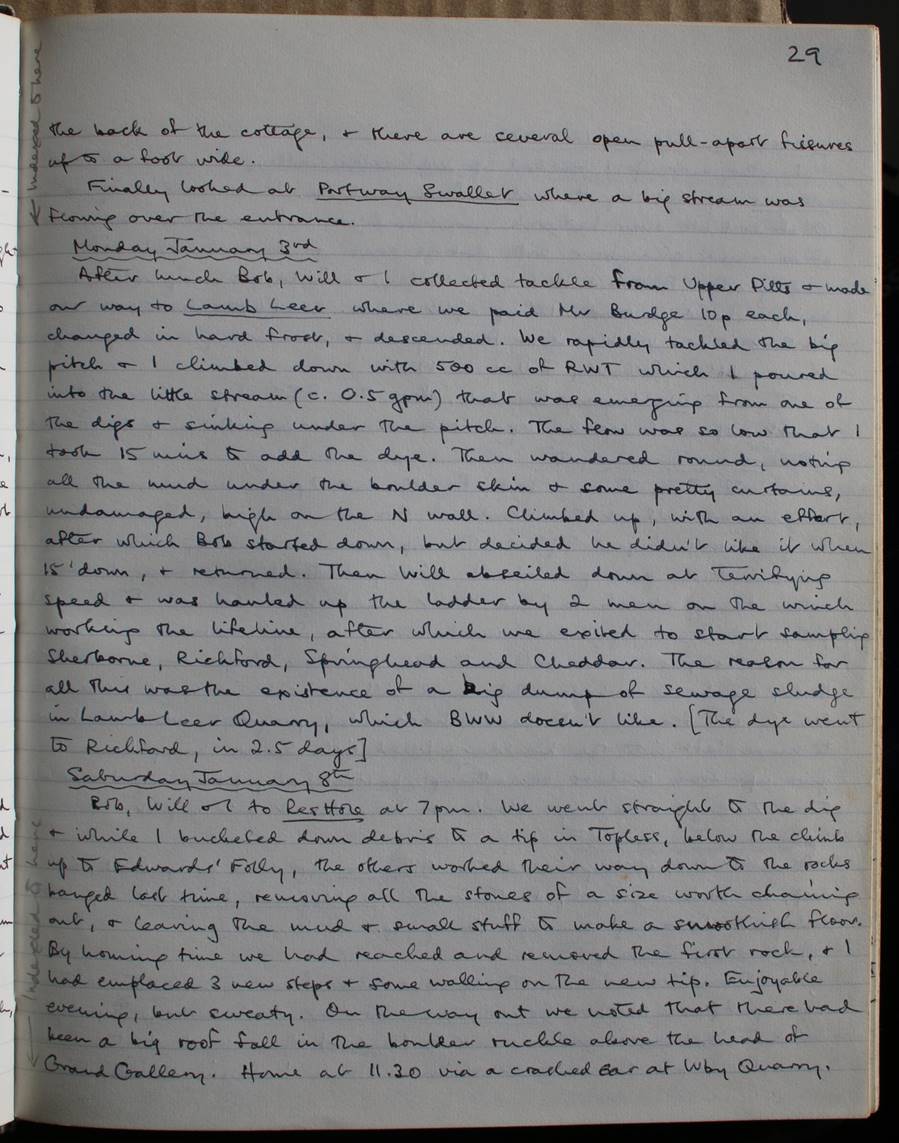 29
the back of the cottage, + there are several open pull-apart fissures
up to a foot wide.
Finally looked at Portway Swallet where a big stream was
flowing over the entrance.
Monday January 3rd
After lunch Bob, Will + I collected tackle from Upper Pitts + made
our way to Lamb Leer where we paid Mr Burdge 10p each,
changed in hard frost, + descended. We rapidly tackled the big
pitch + I climbed down with 500 cc of RWT which I poured
into the little stream (c. 0.5 gpm) that was emerging from one of
the digs + sinking under the pitch. The flow was so low that I
took 15 mins to add the dye. Then wandered round, noting
all the mud under the boulder skin + some pretty curtains,
undamaged, high on the N wall. Climbed up, with an effort,
after which Bob started down, but decided he didn't like it when
15' down, + returned. Then Will abseiled down at terrifying
speed + was hauled up the ladder by 2 men on the winch
working the lifeline, after which we exited to start sampling
Sherborne, Rickford, Springhead and Cheddar. The reason for
all this was the existence of a big dump of sewage sludge
in Lamb Leer Quarry, which BWW doesn't like. [The dye went
to Rickford, in 2.5 days]
Saturday January 8th
Bob, Will + I to Res Hole at 7pm. We went straight to the dig
+ while I bucketed down debris to a tip in Topless, below the climb
up to Edwards' Folly, the others worked their way down to the rocks
banged last time, removing all the stones of a size worth chaining
out, + leaving the mud + small stuff to make a smoothish floor.
By homing time we had reached and removed the first rock, + I
had emplaced 3 new steps + some walling on the new tip. Enjoyable
evening, but sweaty. On the way out we noted that there had
been a big roof fall in the boulder ruckle above the head of
Grand Gallery. Home at 11.30 via a crashed car at Wby Quarry.
← Indexed to here
← Indexed to here